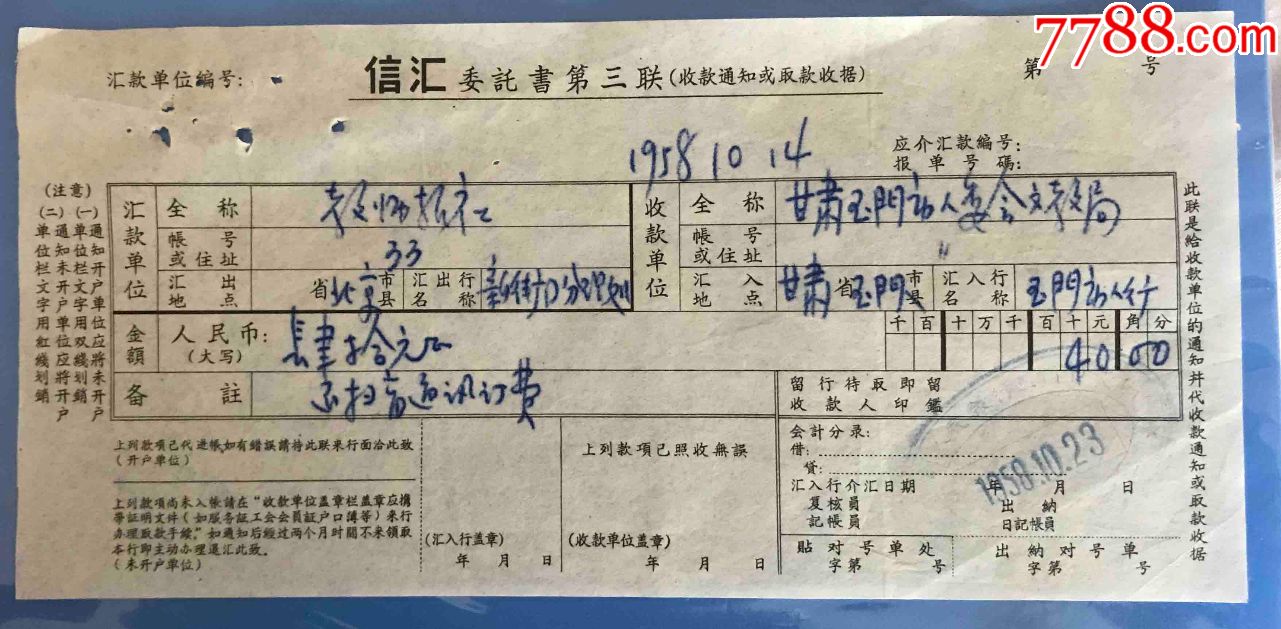 7788.com
汇款单位编号:
信汇委託書第三联(收款通知或取款收据)
第 号
1958 10 14
应介汇款编号:
报单号碼:
(注意)
(一)通知单位栏文字用双綫划銷
开户单位应將未开户
(二)单位栏文字用紅綫划銷
通知未开户单位应將开户
汇款单位
全称
教师报社
帳号或住址
33
汇出地点
省北京市县
汇出行名称
新街口分理处
收款单位
全称
甘肃玉門市人委会文教局
帳号或住址
〃
汇入地点
甘肃省玉門市县
汇入行名称
玉門市人行
金額
人民币:
(大写)
肆拾元正
千百十万千百十元角分
4000
备註
扫盲通讯订费
留行待取即留
收款人印鑑
上列款項已代进帳如有錯誤請持此联来行面洽此致
(开户单位)
上列款項尚未入帳請在“收款单位盖章栏盖章应携
带証明文件(如服务証工会会員証户口簿等)来行
办理取款手續。”如通知后經过两个月时間不来領取
本行即主动办理退汇此致。
(未开户单位)
(汇入行盖章)
年 月 日
上列款項已照收無誤
(收款单位盖章)
年 月 日
会計分录:
借:
貸:
汇入行介汇日期 年 月 日
复核員 出納
記帳員 日記帳員
貼对号单处
字第 号
出納对号单
字第 号
1958.10.23
此联是給收款单位的通知幷代收款通知或取款收据